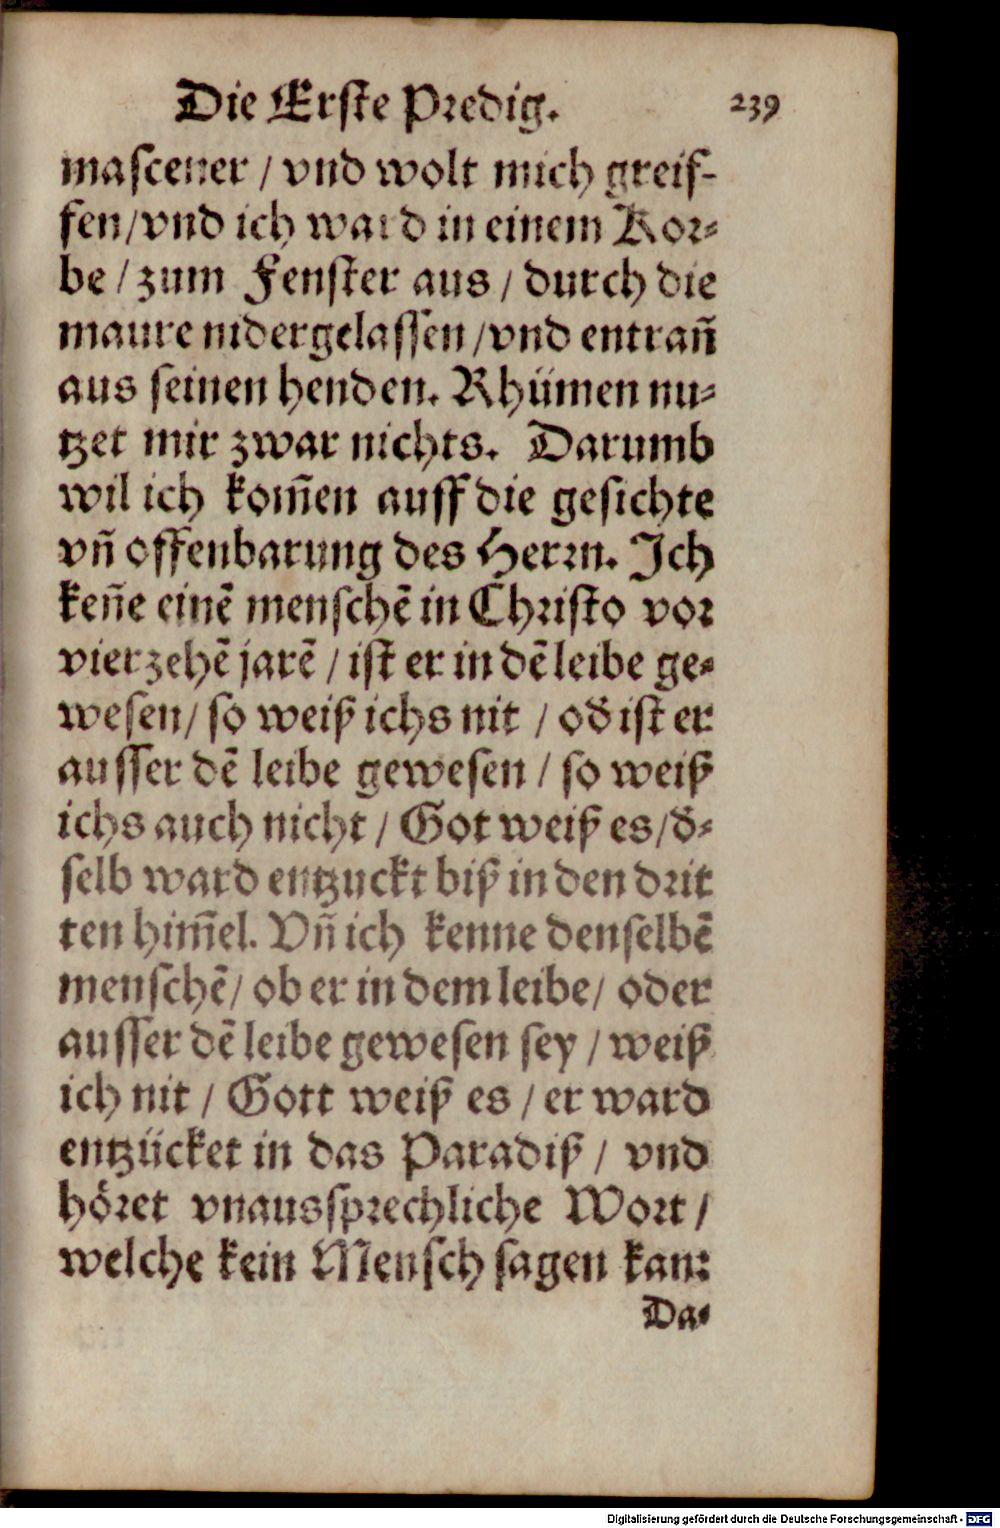 Die Erste Predig. 239
mascener / vnd wolt mich greif-
fen/vnd ich ward in einem Kor-
be / zum Fenster aus / durch die
maure nidergelassen /vnd entrañ
aus seinen henden. Rhümen nu-
tzet mir zwar nichts. Darumb
wil ich kom̃en auff die gesichte
vñ offenbarung des Herrn. Ich
keñe einẽ menschẽ in Christo vor
vierzehẽ jarẽ / ist er in dẽ leibe ge-
wesen/ so weiß ichs nit / od̃ ist er
ausser dẽ leibe gewesen / so weiß
ichs auch nicht / Got weiß es/d̃-
selb ward entzuckt biß in den drit
ten him̃el. Vñ ich kenne denselbẽ
menschẽ/ ob er in dem leibe/ oder
ausser dẽ leibe gewesen sey / weiß
ich nit / Gott weiß es / er ward
entzücket in das Paradiß / vnd
höret vnaussprechliche Wort /
welche kein Mensch sagen kan:
Da-
Digitalisierung gefördert durch die Deutsche Forschungsgemeinschaft - DFG